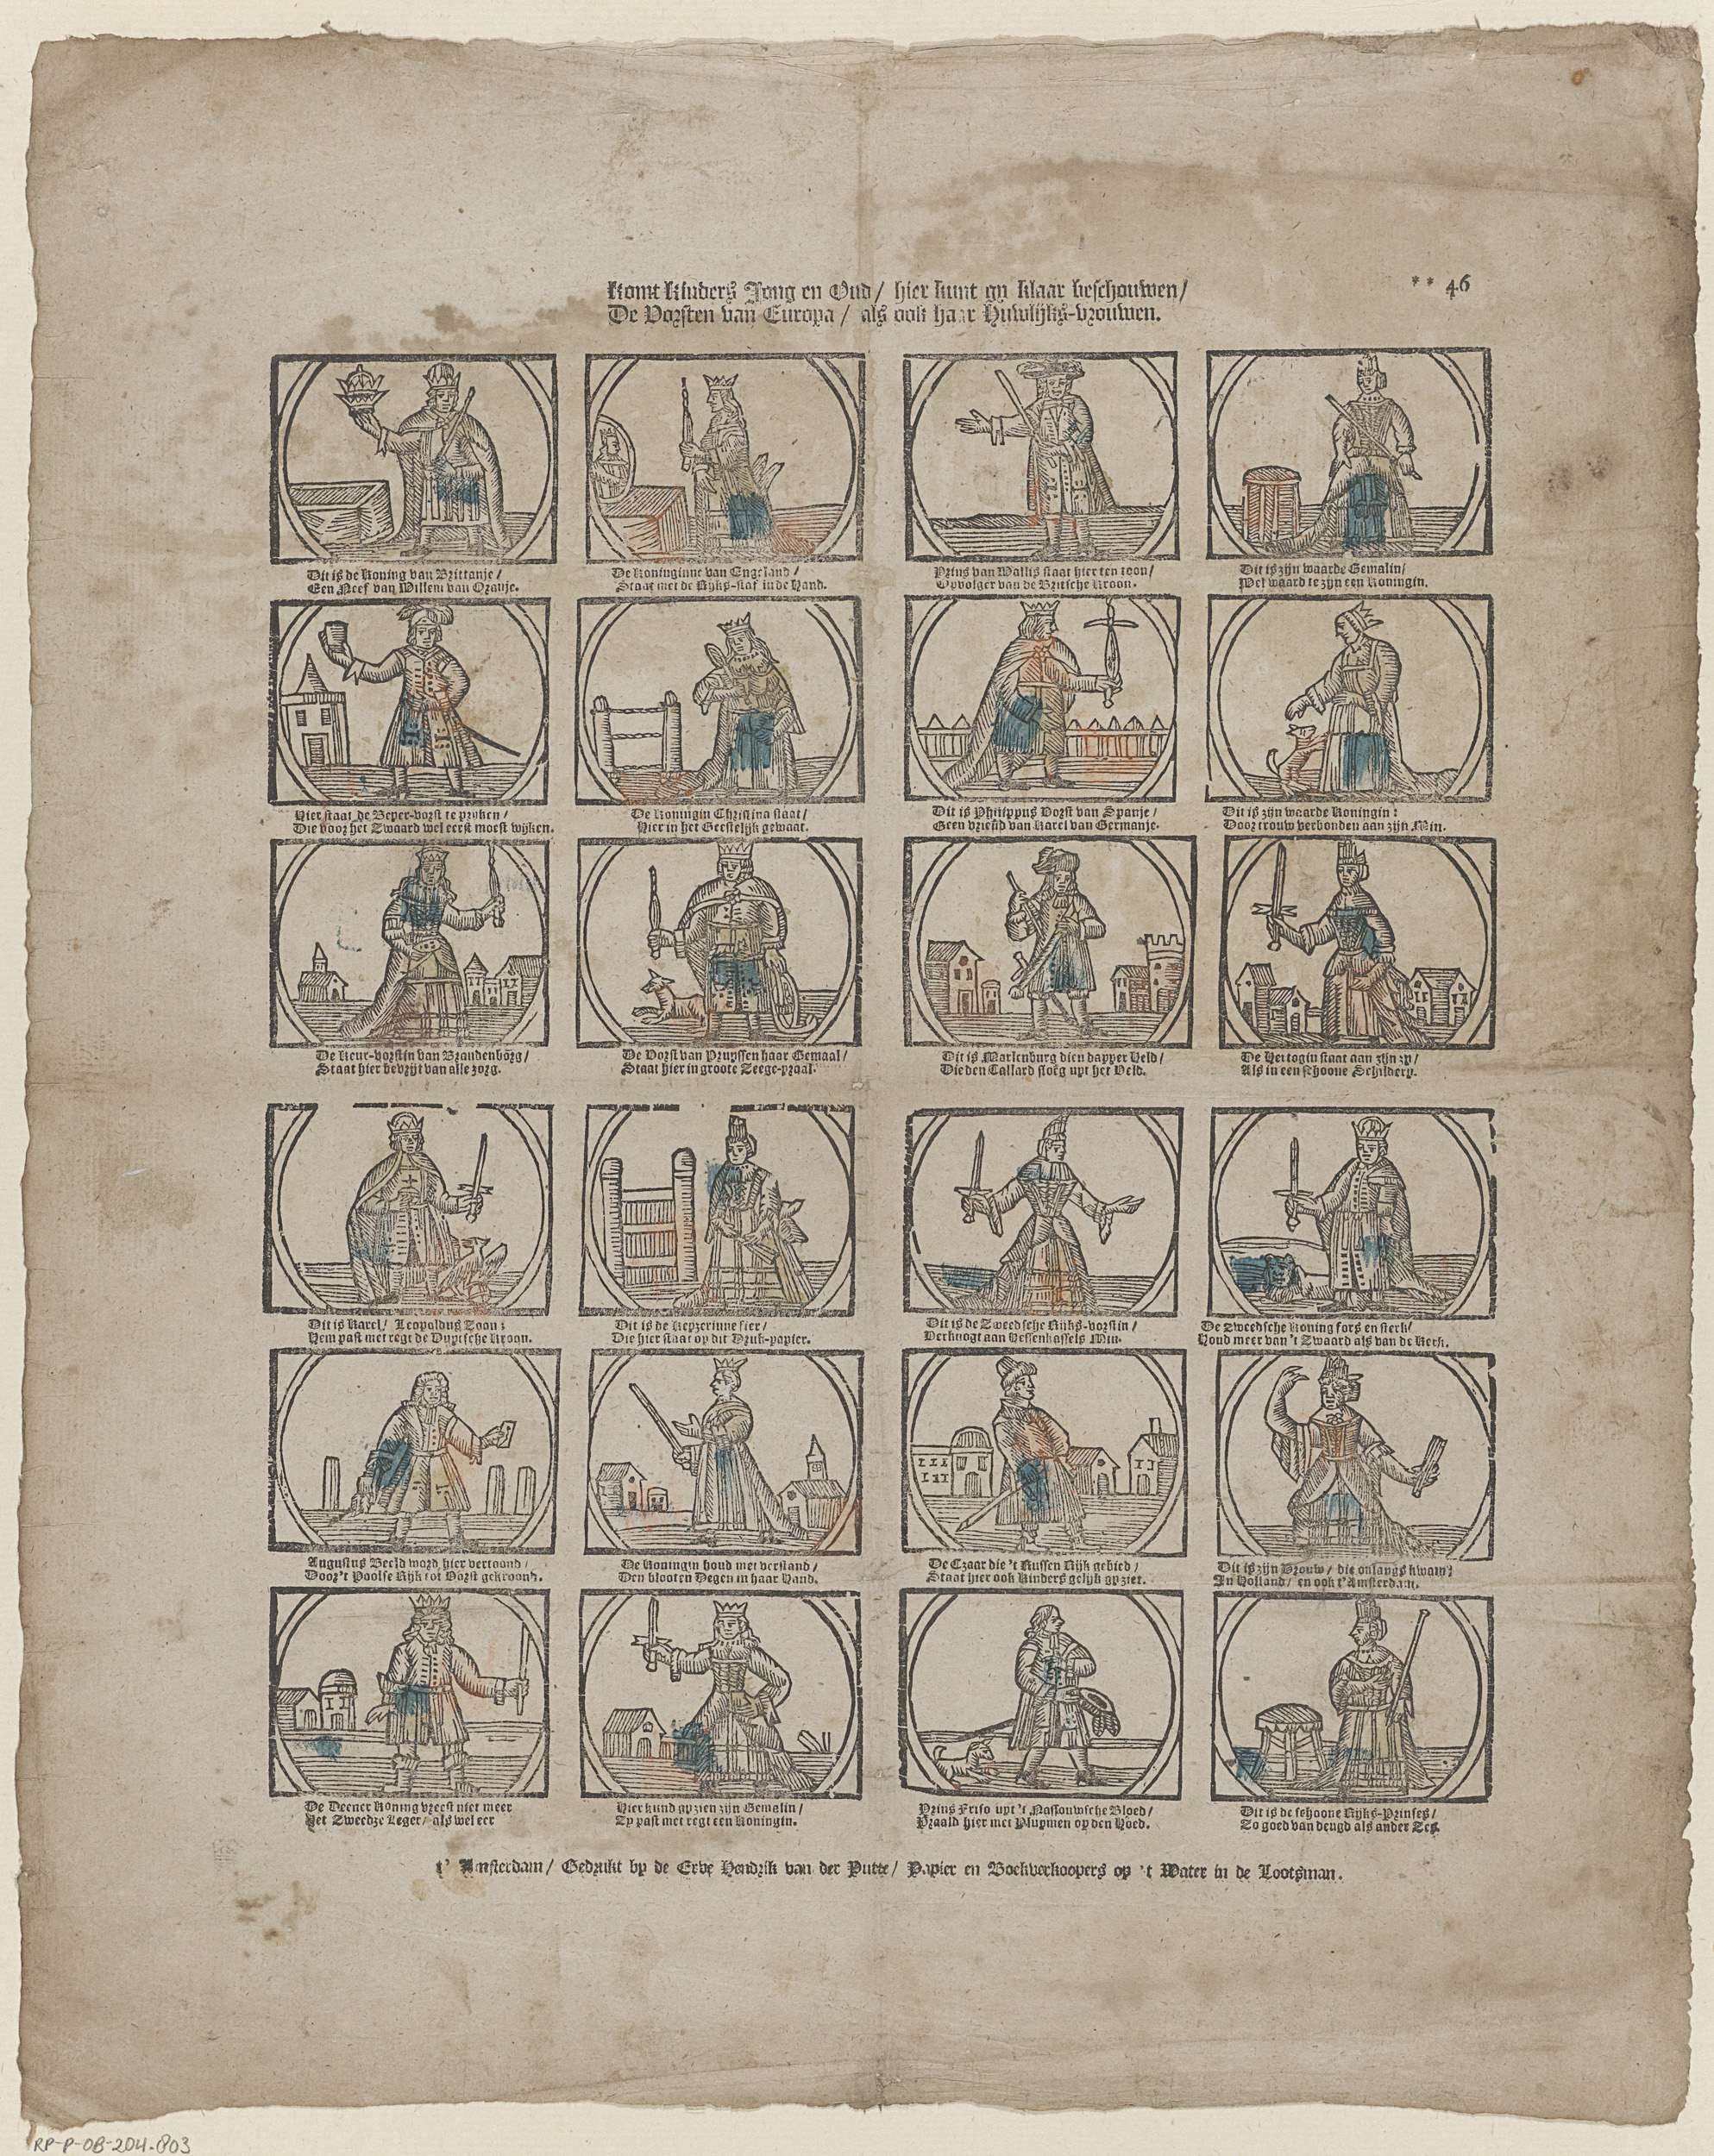 Komt Kinders Jong en Oud / hier kunt gy klaar beschouwen /
De Vorsten van Europa / als ook haar Huwlijks-vrouwen.
** 46
Dit is de Koning van Brittanje /
Een Neef van Willem van Oranje.
De Koninginne van Engeland /
Staat met de Rijks-staf in de Hand.
Prins van Wallis staat hier ten toon /
Opvolger van de Britsche Kroon.
Dit is zijn waarde Gemalin /
Wel waard te zijn een Koningin.
Hier staat de Beyer-vorst te pryken /
Die voor het Zwaard wel eerst moest wijken.
De Koningin Christina staat /
Hier in het Geestelijk gewaat.
Dit is Philippus Vorst van Spanje /
Geen vriend van Karel van Germanje.
Dit is zijn waarde Koningin :
Door trouw verbonden aan zijn Min.
De Keur-vorstin van Brandenborg /
Staat hier bevrijt van alle zorg.
De Vorst van Pruyssen haar Gemaal /
Staat hier in groote Zeege-praal.
Dit is Marlenburg dien dapper Held /
Die den Tallard sloeg uyt het Veld.
De Hertogin staat aan zijn zy /
Als in een schoone Schildery.
Dit is Karel / Leopoldus Zoon :
Hem past met regt de Duytsche Kroon.
Dit is de Keyzerinne fier /
Die hier staat op dit Druk-papier.
Dit is de Zweedsche Rijks-vorstin /
Verknogt aan Hessenkassels Min.
De Zweedsche Koning fors en sterk /
Houd meer van 't Zwaard als van de Kerk.
Augustus Beeld word hier vertoond /
Door 't Poolse Rijk tot Vorst gekroond.
De Koningin houd met verstand /
Den blooten Degen in haar Hand.
De Czaar die 't Russen Rijk gebied /
Staat hier ook Kinders gelijk gy ziet.
Dit is zijn Vrouw / die onlangs kwam
In Holland / en ook t'Amsterdam.
De Deener Koning vreest niet meer
Het Zweedze Leger / als wel eer
Hier kund gy zien zijn Gemalin /
Zy past met regt een Koningin.
Prins Friso uyt 't Nassouwsche Bloed /
Praald hier met Pluymen op den Hoed.
Dit is de schoone Rijks-Prinses /
Zo goed van deugd als ander Zes.
t' Amsterdam / Gedrukt by de Erve Hendrik van der Putte / Papier en Boekverkoopers op 't Water in de Lootsman.
RP-P-OB-204.803